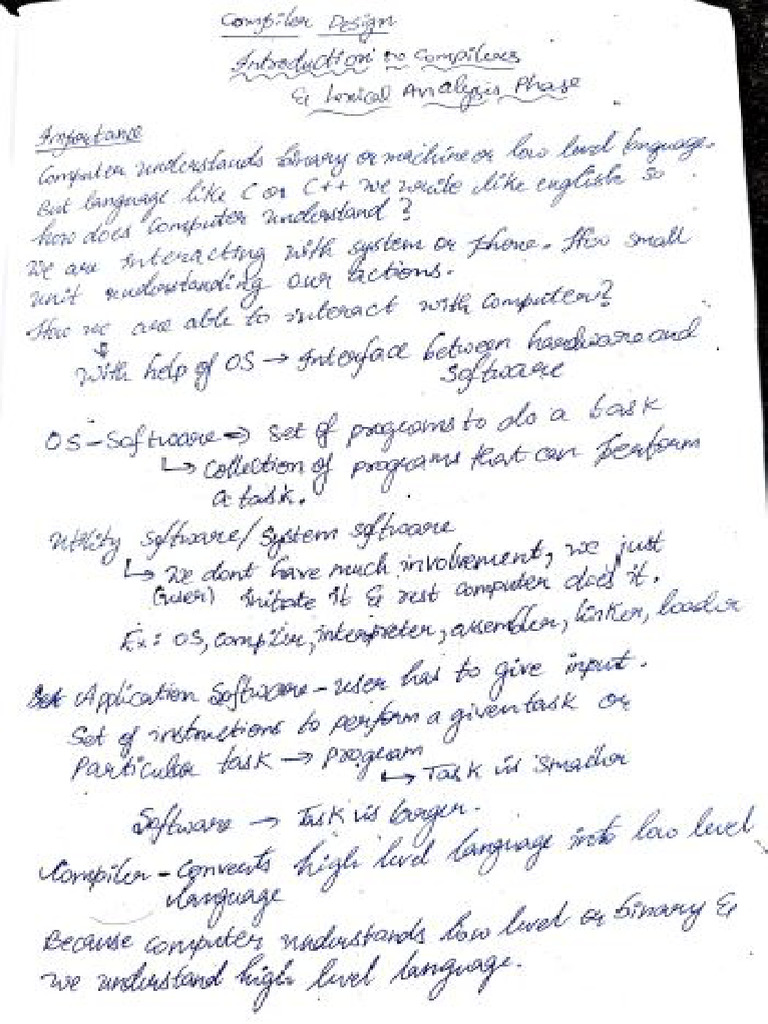 Compiler Design
Introduction to Compilers
& Lexical Analysis Phase
Importance
Computer understands binary or machine or low level language.
But language like C or C++ we write like english so
how does computer understand?
We are interacting with system or phone. How small
unit understanding our actions.
How we are able to interact with computer?
↓
With help of OS → Interface between hardware and
software
OS - Software → Set of programs to do a task
↳ Collection of programs that can perform
a task.
Utility Software / System software
↳ We dont have much involvement, we just
(user) initiate it & rest computer does it.
Ex: OS, compiler, interpreter, assembler, linker, loader
Set Application Software - user has to give input.
Set of instructions to perform a given task or
Particular task → program
↳ Task is smaller
Software → Task is larger.
Compiler - Converts high level language into low level
language
Because computer understands low level or binary &
we understand high level language.